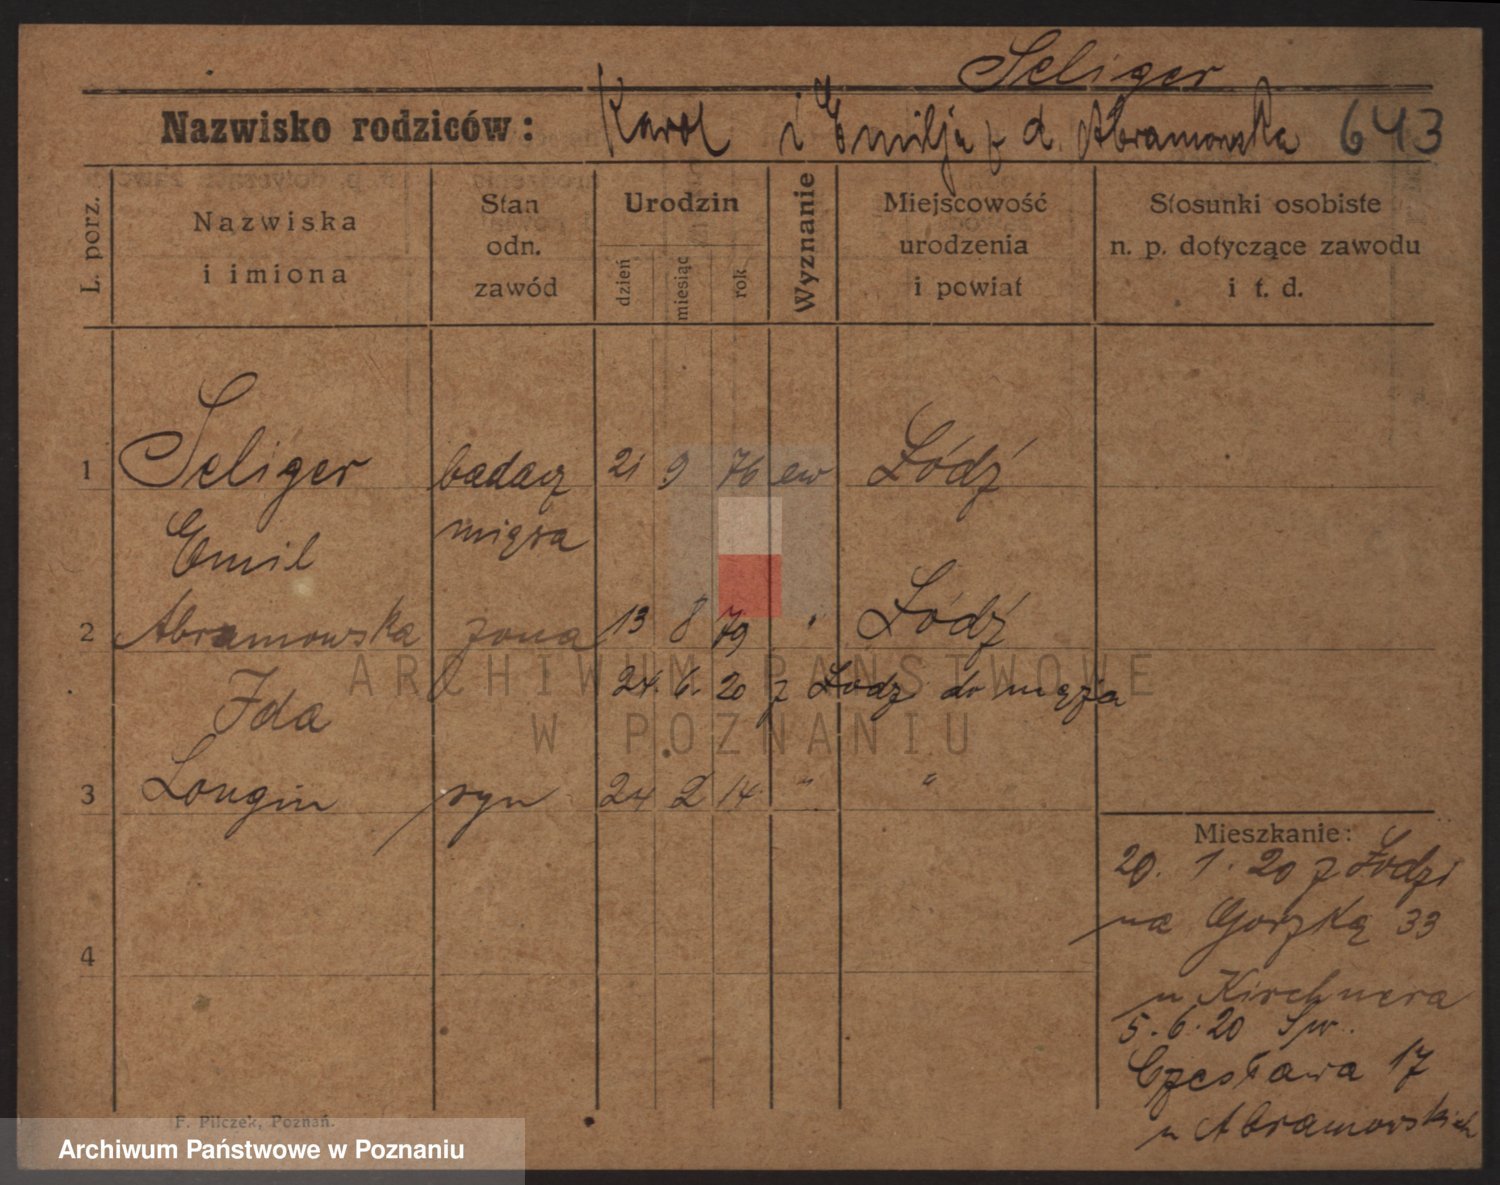 Seliger
Nazwisko rodziców: Karol i Emilja z d. Abramowska 643
L. porz.
Nazwiska i imiona
Stan odn. zawód
Urodzin
dzień
miesiąc
rok
Wyznanie
Miejscowość urodzenia i powiat
Stosunki osobiste n. p. dotyczące zawodu i t. d.
1 Seliger badacz 21 9 76 ew Łódź
Emil mięsa
2 Abramowska żona 13 8 79 " Łódź
Ida 24. 6. 20 z Łodzi do męża
3 Longin syn 24 2 14 " "
4
Mieszkanie:
20. 1. 20 z Łodzi
na Gorzką 33
u Kirchnera
5. 6. 20 Św.
Czesława 17
u Abramowskich
ARCHIWUM PAŃSTWOWE
W POZNANIU
F. Pilczek, Poznań.
Archiwum Państwowe w Poznaniu